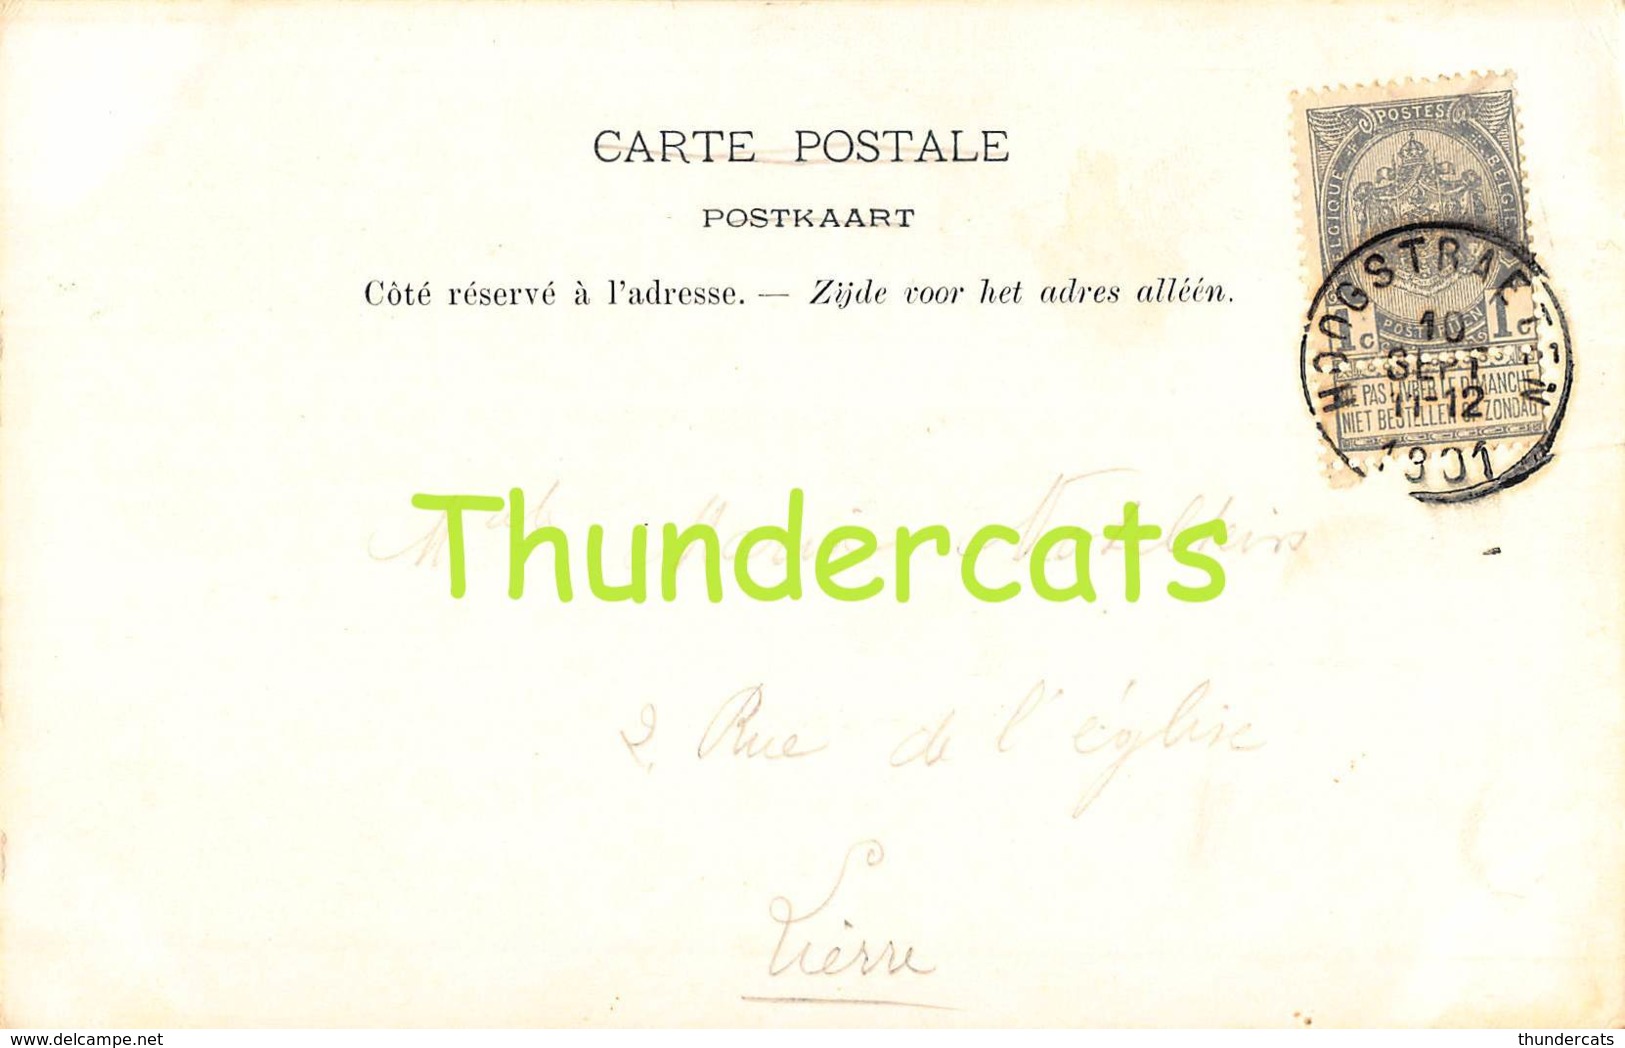 CARTE POSTALE
POSTKAART
Côté réservé à l'adresse. — Zijde voor het adres alléén.
POSTES
BELGIQUE
BELGIE
1c
1c
NE PAS LIVRER LE DIMANCHE
NIET BESTELLEN OP ZONDAG
HOOGSTRAETEN
10
SEPT
11-12
1901
Thundercats
Melle Marie
2 Rue de l'église
Lierre
www.delcampe.net
thundercats